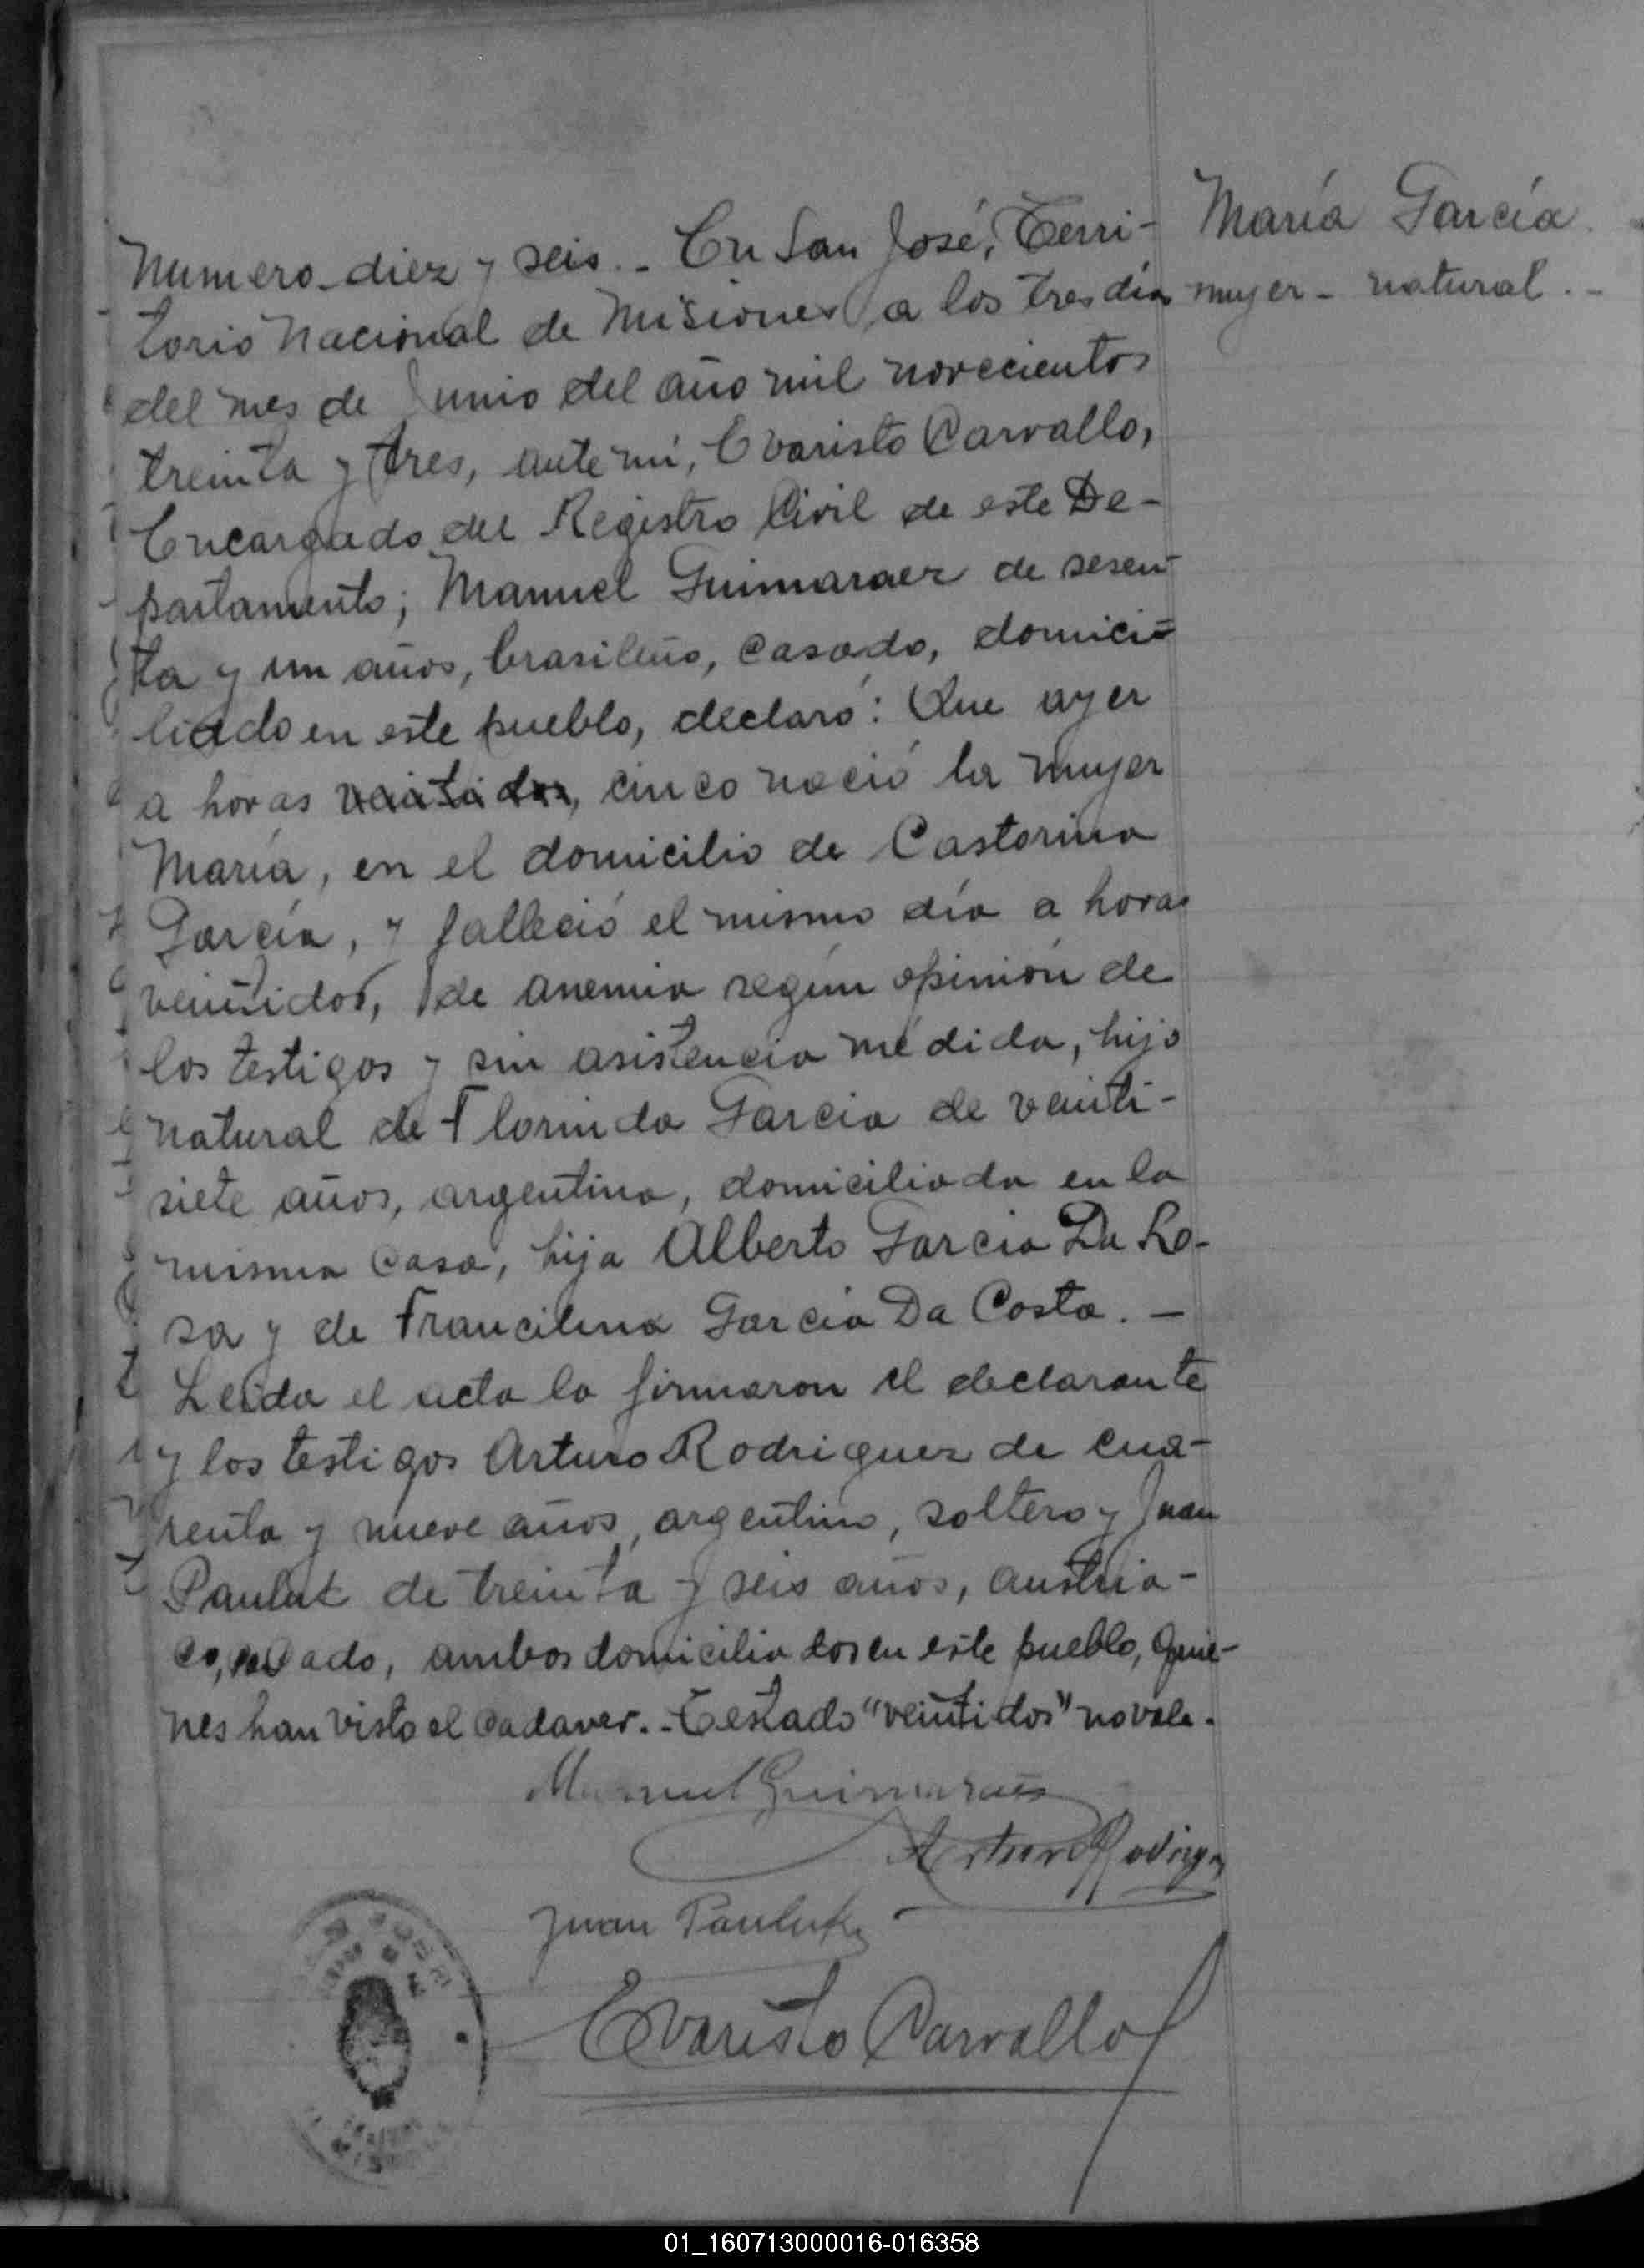 Numero diez y seis.- En San José, Terri-
torio Nacional de Misiones, a los tres días
del mes de Junio del año mil novecientos
treinta y tres, ante mí, Evaristo Carvallo,
Encargado del Registro Civil de este De-
partamento; Manuel Guimaraez de sesen-
ta y un años, brasileño, casado, domici-
liado en este pueblo, declaró: Que ayer
a horas veintidos, cinco nació la mujer
María, en el domicilio de Castorina
García, y falleció el mismo día a horas
veintidos, de anemia según opinión de
los testigos y sin asistencia médida, hija
natural de Florinda Garcia de veinti-
siete años, argentina, domiciliada en la
misma casa, hija Alberto Garcia Da Ro-
sa y de Francilina Garcia Da Costa. -
Leida el acta la firmaron el declarante
y los testigos Arturo Rodriguez de cua-
renta y nueve años, argentino, soltero y Juan
Pauluk de treinta y seis años, austria-
co, casado, ambos domiciliados en este pueblo, quie-
nes han visto el cadaver.- Testado "veintidos" no vale.
María García
mujer - natural.-
Manuel Guimaraes
Arturo Rodriguez
Juan Pauluk
Evaristo Carvallo
01_160713000016-016358